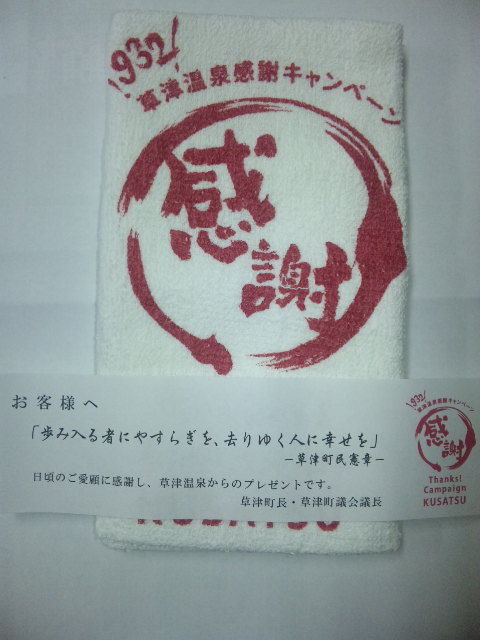 1932!
草津温泉感謝キャンペーン
感
謝
お客様へ
「歩み入る者にやすらぎを、去りゆく人に幸せを」
―草津町民憲章―
日頃のご愛顧に感謝し、草津温泉からのプレゼントです。
草津町長・草津町議会議長
1932!
草津温泉感謝キャンペーン
感
謝
Thanks!
Campaign
KUSATSU
KUSATSU